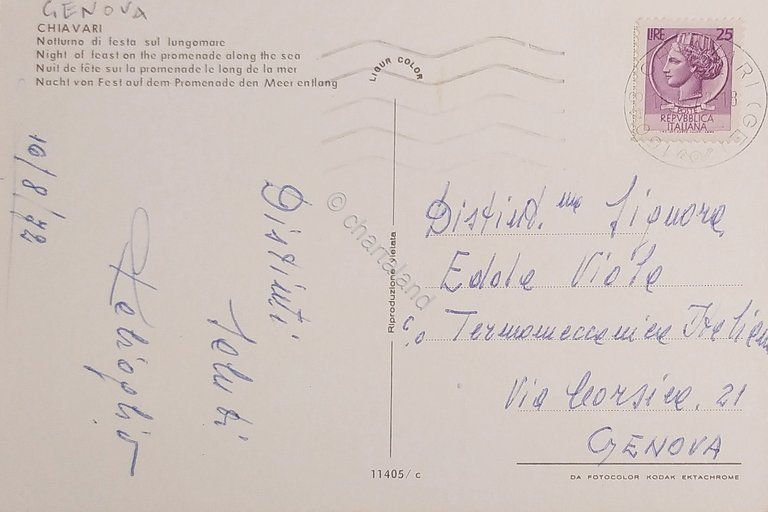 GENOVA
CHIAVARI
Notturno di festa sul lungomare
Night of feast on the promenade along the sea
Nuit de fête sur la promenade le long de la mer
Nacht von Fest auf dem Promenade den Meer entlang
LIGUR COLOR
LIRE 25
POSTE
REPVBBLICA
ITALIANA
10/8/72
Distinti
Saluti
Riproduzione vietata
© chartaland
Distint.ma Signora
Edda Viola
c/o Termomeccanica Italiana
Via Corsica, 21
GENOVA
11405/c
DA FOTOCOLOR KODAK EKTACHROME